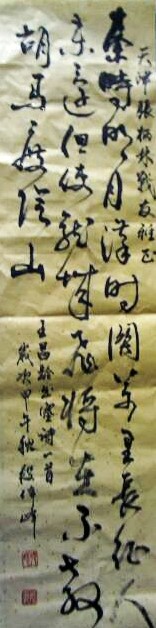 天津張柏林戰友雅正
秦時明月漢時關萬里長征人
未還但使龍城飛將在不教
胡馬度陰山
王昌齡出塞詩一首
歲次甲午秋 段偉峰